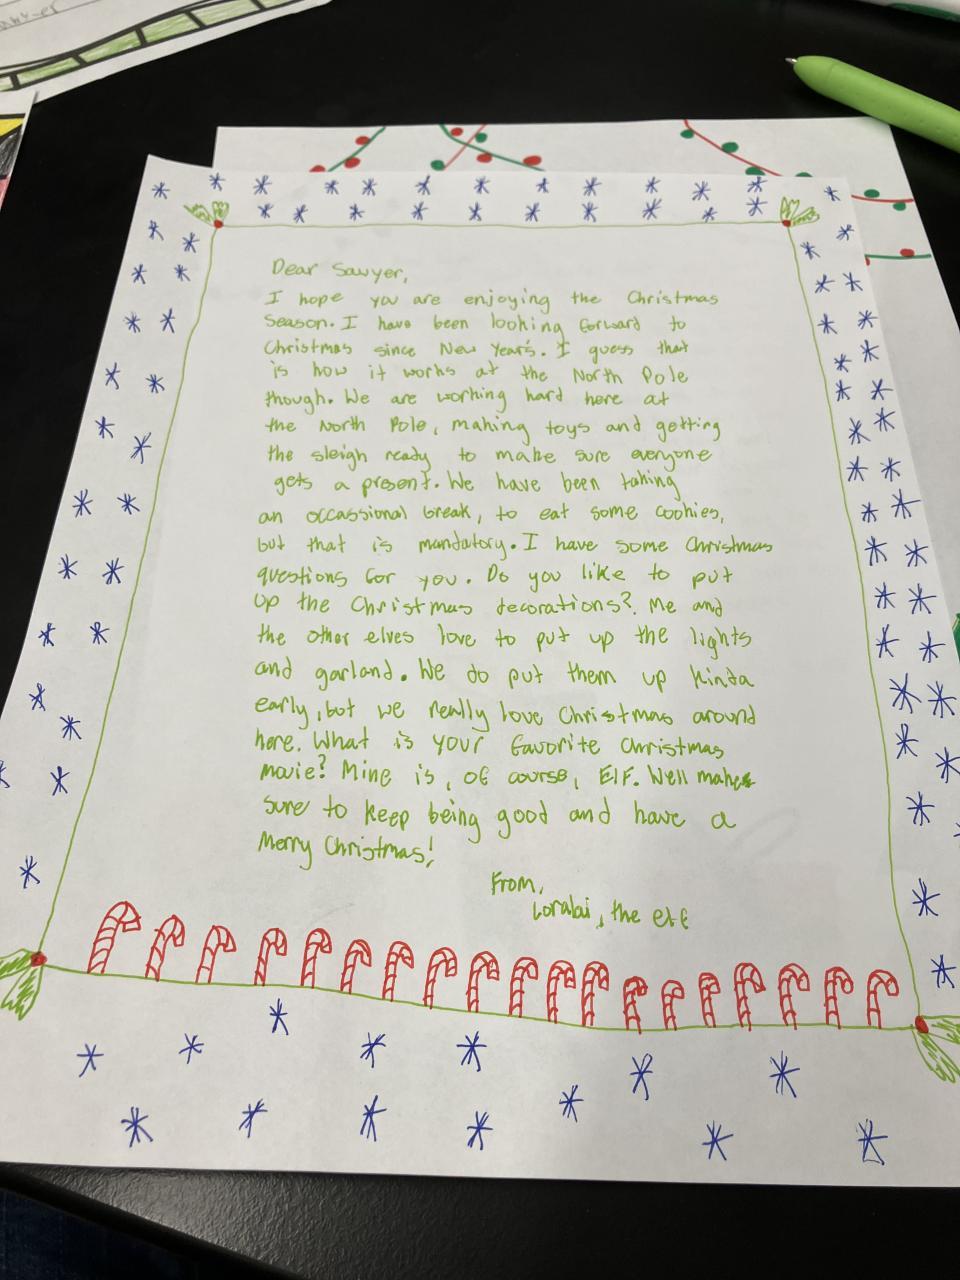 Dear Sawyer,
I hope you are enjoying the Christmas
season. I have been looking forward to
Christmas since New Year's. I guess that
is how it works at the North Pole
though. We are working hard here at
the North Pole, making toys and getting
the sleigh ready to make sure everyone
gets a present. We have been taking
an occassional break, to eat some cookies,
but that is mandatory. I have some Christmas
questions for you. Do you like to put
up the Christmas decorations? Me and
the other elves love to put up the lights
and garland. We do put them up kinda
early, but we really love Christmas around
here. What is your favorite Christmas
movie? Mine is, of course, Elf. Well make
sure to keep being good and have a
Merry Christmas!
From,
Loralai, the elf